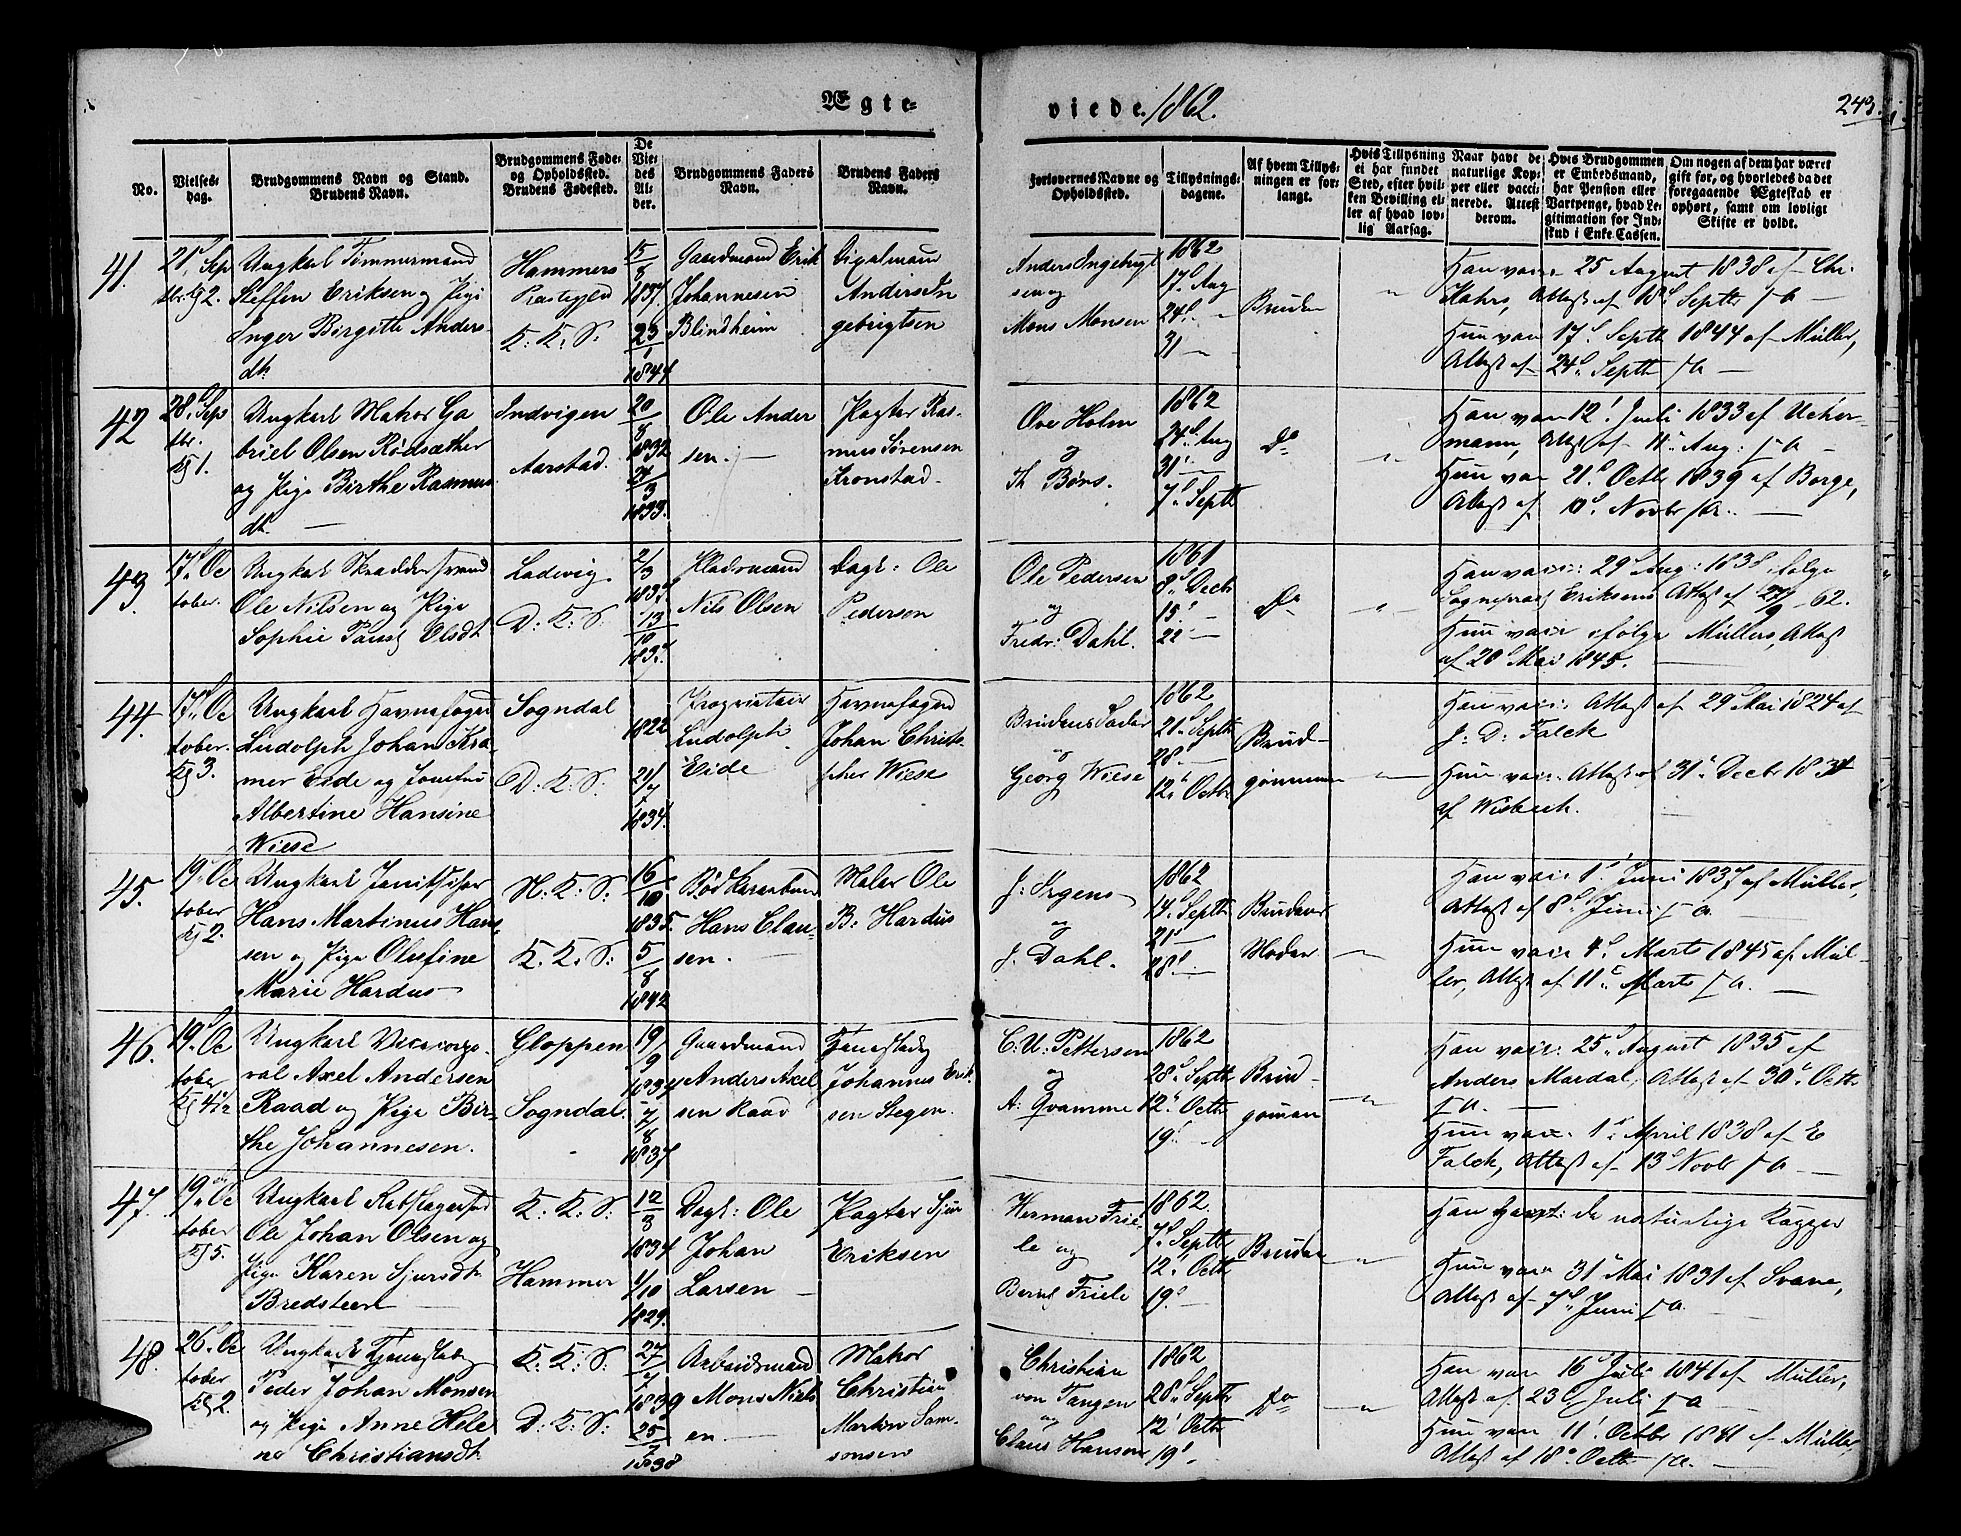 Ægte-
viede. 1862.
243.
No.
Vielses-
dag.
Brudgommens Navn og Stand.
Brudens Navn.
Brudgommens Føde-
og Opholdssted.
Brudens Fødested.
De
Vie-
des
Al-
der.
Brudgommens Faders
Navn.
Brudens Faders
Navn.
Forlovernes Navne og
Opholdssted.
Tillysnings-
dagene.
Af hvem Tillys-
ningen er for-
langt.
Hvis Tillysning
ei har fundet
Sted, efter hvil-
ken Bevilling el-
ler af hvad lov-
lig Aarsag.
Naar havt de
naturlige Kop-
per eller vacci-
nerede. Attest
derom.
Hvis Brudgommen
er Embedsmand,
har Pension eller
Vartpenge, hvad Le-
gitimation for Ind-
skud i Enke-Cassen.
Om nogen af dem har været
gift før, og hvorledes da det
foregaaende Ægteskab er
ophørt, samt om lovligt
Skifte er holdt.
41.
21 Sep
tbr. Kj 2.
Ungkarl Tømmermand
Steffen Eriksen og Pige
Inger Birgitte Anders-
dt.
Hammers
Præstegjeld
K. K. S.
15/8
1837.
23/1
1844
Gaardmand Erik
Johannesen
Blindheim
Anders In
gebrigtsen
Anders Ingebrigt
sen og
Mons Monsen
1862
17. Aug
24. -
31 -
Bruden
"
Han vacc. 25 August 1838 af Chr.
Kahrs, Attest af 18. Septbr s.a. -
Hun vacc. 17. Septb 1844 af Müller,
Attest af 24. Septb s.a. -
42
28. Sep
tbr.
Kj 1.
Ungkarl Makor Ga
briel Olsen Rødsæther
og Pige Birthe Rasmus
dt. -
Indvigen
Aarstad.
20/8
1832
4/3
1833.
Ole Ander
sen. -
Pagter Ras-
mus Sørensen
Kronstad.
Ove Holm
og
Th Børs.
1862
24. Aug
31. -
7. Septb
Do
"
Han vac 12. Juli 1833 af Ucher-
mann, Attest af 11. Aug: s.a. -
Hun vac 21. Octbr 1839 af Borge,
Attest af 10. Novbr s.a. -
43.
17. Oc
tober.
Ungkarl Skræddersvend
Ole Nilsen og Pige
Sophie Paust Olsdt
Ladevig.
D: K: S:
2/3
13/10
Pladsmand
Nils Olsen
Dagl: Ole
Pedersen
Ole Pedersen
og
Fredr: Dahl.
1861
8. Decb
15. -
22. -
Do
"
Han vacc: 29. Aug: 1838, ifølge
Sognepræst Eriksens Attest af 27/9 - 62.
Hun vacc ifølge Müllers, Attest
af 20. Mai 1845. -
44.
17. Oc
tober.
Kj 3.
Ungkarl Havnefoged
Ludolph Johan Kra
mer Eide og Josefine
Albertine Hansine
Wiese
Sogndal
D: K: S:
1822
21/7
1834.
Proprietair
Ludolph
Eide
Havnefoged
Johan Christo-
pher Wiese
Brudens Fader
og
Georg Wiese
1862
21. Septb
28. -
12. Octbr
Brud-
gommen
"
Han vacc: Attest af 29. Mai 1824 af
J: D: Falck
Hun vacc: Attest af 31. Decbr 1834
af Wisbech.
45.
19. Oc
tober
Kj 2.
Ungkarl Janitshar
Hans Martinus Han
sen og Pige Olufine
Marie Hardus
N: K: S:
K. K. S:
16/10
1835.
5/8
1842
Bødkersvend
Hans Clau-
sen. -
Maler Ole
B: Hardus
J: Irgens
og
J. Dahl.
1862
14. Septb
21. -
28. -
Brudens
Moder
"
Han vacc 1. Juni 1837 af Müller,
Attest af 8. Juni s.a.
Hun vacc. 4. Marts 1845 af Mül-
ler, Attest af 11. Marts s.a. -
46.
19. Oc
tober
Kj 4 1/2
Ungkarl Vicecorpo-
ral Axel Andersen
Raad og Pige Bir-
the Johannesen.
Gloppen
Sogndal.
19/9
1834
7/8
1837
Gaardmand
Anders Axel
sen Raad
Johannes Erik-
sen Stegen.
C: U: Pettersen
og
A: Qvamme
1862
28. Septb
12. Octb
19. -
Brud-
goman
"
Han vacc: 25. August 1835 af
Anders Mardal, Attest af 30. Octb
s.a. -
Hun vacc: 1. April 1838 af E
Falck, Attest af 13. Novbr s.a. -
47.
19. Oc
tober
Kj 5.
Ungkarl Rebslagersvend
Ole Johan Olsen og
Pige Karen Sjursdt
Bredsteen
K: K: S:
Hammer
12/8
1834
4/10
1829.
Dagl: Ole
Johan
Larsen -
Pagter Sjur
Eriksen
Herman Frie-
le og
Bernt Friele
1862.
7. Septb
12. Octb
19. -
Bruden
"
Han havt: de naturlige Kopper
Hun vacc 31. Mai 1831 af Svane,
Attest af 7. Juni s.a.
48.
26. Oc
tober
Kj 2.
Ungkarl
Peder Johan Monsen
og Pige Anne Hele
ne Christiansdt
K: K: S:
D: K: S:
27/7
1839
25/7
1838
Arbeidsmand
Mons Niels
en. -
Makor
Christian
Martin Sam-
sonsen
Christian
von Tangen
og
Claus Hansen
1862
28. Septb
12. Octb
19. -
Do
"
Han vacc 16 Juli 1841 af Müller,
Attest af 23. Juli s.a -
Hun vacc 11. Octbr 1841 af Müller,
Attest af 18. Octb s.a. -